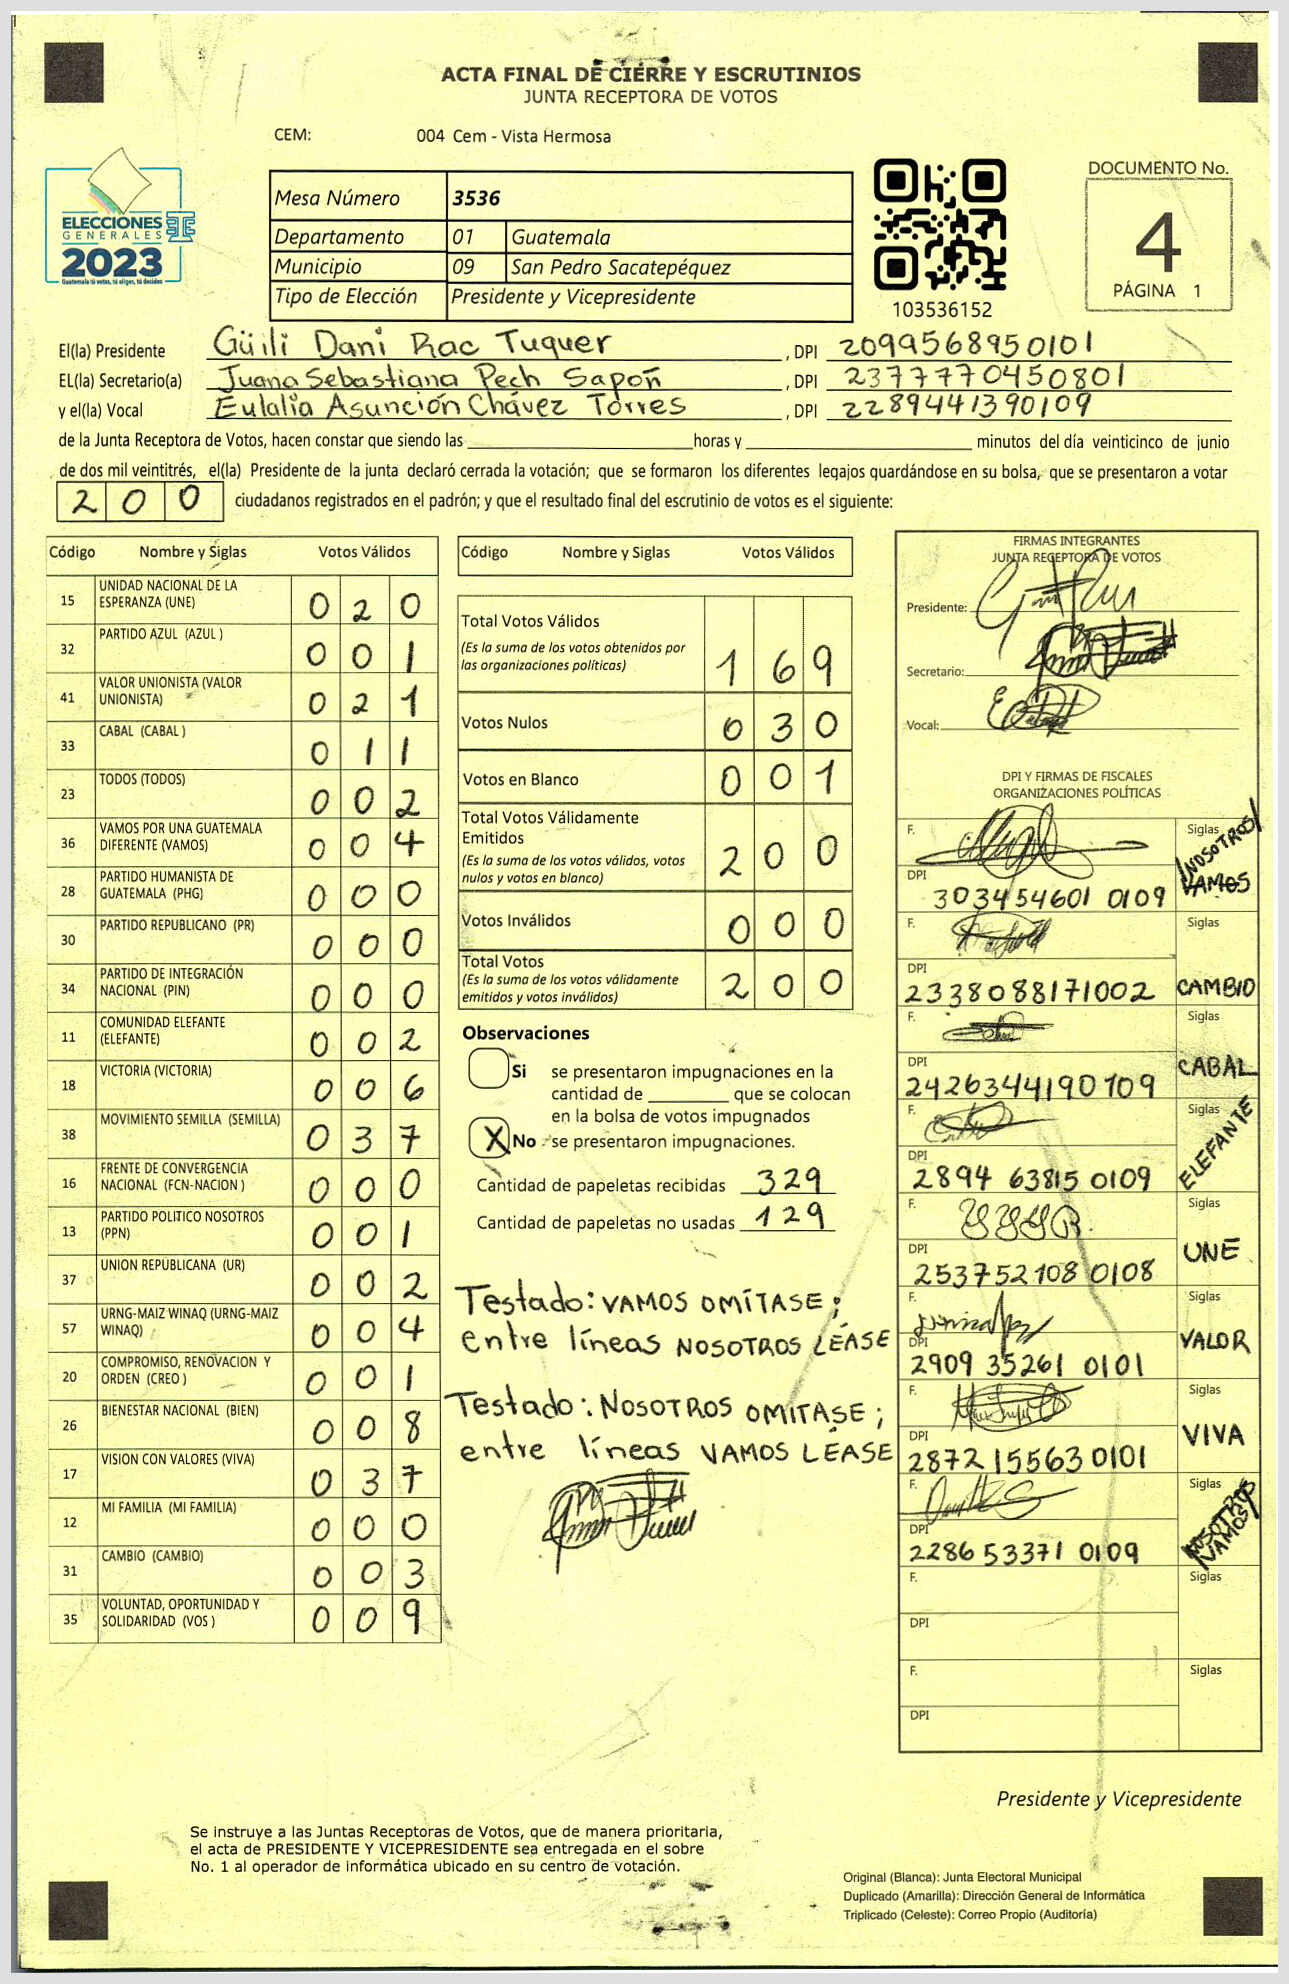 ACTA FINAL DE CIERRE Y ESCRUTINIOS
JUNTA RECEPTORA DE VOTOS
CEM: 004 Cem - Vista Hermosa
ELECCIONES
GENERALES
2023
Guatemala tú votas, tú eliges, tú decides
Mesa Número 3536
Departamento 01 Guatemala
Municipio 09 San Pedro Sacatepéquez
Tipo de Elección Presidente y Vicepresidente
103536152
DOCUMENTO No.
4
PÁGINA 1
El(la) Presidente Güili Dani Rac Tuquer, DPI 2099568950101
EL(la) Secretario(a) Juana Sebastiana Pech Sapoñ, DPI 2377770450801
y el(la) Vocal Eulalia Asunción Chávez Torres, DPI 2289441390109
de la Junta Receptora de Votos, hacen constar que siendo las ________ horas y ________ minutos del día veinticinco de junio
de dos mil veintitrés, el(la) Presidente de la junta declaró cerrada la votación; que se formaron los diferentes legajos guardándose en su bolsa, que se presentaron a votar
2 0 0 ciudadanos registrados en el padrón; y que el resultado final del escrutinio de votos es el siguiente:
Código Nombre y Siglas Votos Válidos
15 UNIDAD NACIONAL DE LA ESPERANZA (UNE) 0 2 0
32 PARTIDO AZUL (AZUL ) 0 0 1
41 VALOR UNIONISTA (VALOR UNIONISTA) 0 2 1
33 CABAL (CABAL ) 0 1 1
23 TODOS (TODOS) 0 0 2
36 VAMOS POR UNA GUATEMALA DIFERENTE (VAMOS) 0 0 4
28 PARTIDO HUMANISTA DE GUATEMALA (PHG) 0 0 0
30 PARTIDO REPUBLICANO (PR) 0 0 0
34 PARTIDO DE INTEGRACIÓN NACIONAL (PIN) 0 0 0
11 COMUNIDAD ELEFANTE (ELEFANTE) 0 0 2
18 VICTORIA (VICTORIA) 0 0 6
38 MOVIMIENTO SEMILLA (SEMILLA) 0 3 7
16 FRENTE DE CONVERGENCIA NACIONAL (FCN-NACION ) 0 0 0
13 PARTIDO POLITICO NOSOTROS (PPN) 0 0 1
37 UNION REPUBLICANA (UR) 0 0 2
57 URNG-MAIZ WINAQ (URNG-MAIZ WINAQ) 0 0 4
20 COMPROMISO, RENOVACION Y ORDEN (CREO ) 0 0 1
26 BIENESTAR NACIONAL (BIEN) 0 0 8
17 VISION CON VALORES (VIVA) 0 3 7
12 MI FAMILIA (MI FAMILIA) 0 0 0
31 CAMBIO (CAMBIO) 0 0 3
35 VOLUNTAD, OPORTUNIDAD Y SOLIDARIDAD (VOS ) 0 0 9
Código Nombre y Siglas Votos Válidos
Total Votos Válidos
(Es la suma de los votos obtenidos por
las organizaciones políticas) 1 6 9
Votos Nulos 0 3 0
Votos en Blanco 0 0 1
Total Votos Válidamente
Emitidos
(Es la suma de los votos válidos, votos
nulos y votos en blanco) 2 0 0
Votos Inválidos 0 0 0
Total Votos
(Es la suma de los votos válidamente
emitidos y votos inválidos) 2 0 0
Observaciones
Si se presentaron impugnaciones en la
cantidad de ________ que se colocan
en la bolsa de votos impugnados
X No se presentaron impugnaciones.
Cantidad de papeletas recibidas 329
Cantidad de papeletas no usadas 129
Testado: VAMOS OMÍTASE;
entre líneas NOSOTROS LÉASE
Testado: NOSOTROS OMITASE;
entre líneas VAMOS LÉASE
FIRMAS INTEGRANTES
JUNTA RECEPTORA DE VOTOS
Presidente:
Secretario:
Vocal:
DPI Y FIRMAS DE FISCALES
ORGANIZACIONES POLÍTICAS
F. Siglas NOSOTROS
VAMOS
DPI 303454601 0109
F. Siglas
DPI 2338088171002 CAMBIO
F. Siglas
DPI 2426344190109 CABAL
F. Siglas
DPI 2894 63815 0109 ELEFANTE
F. Siglas
DPI 253752108 0108 UNE
F. Siglas
DPI 2909 35261 0101 VALOR
F. Siglas
DPI 2872 15563 0101 VIVA
F. Siglas NOSOTROS
VAMOS
DPI 2286 53371 0109
F. Siglas
DPI
F. Siglas
DPI
Presidente y Vicepresidente
Se instruye a las Juntas Receptoras de Votos, que de manera prioritaria,
el acta de PRESIDENTE Y VICEPRESIDENTE sea entregada en el sobre
No. 1 al operador de informática ubicado en su centro de votación.
Original (Blanca): Junta Electoral Municipal
Duplicado (Amarilla): Dirección General de Informática
Triplicado (Celeste): Correo Propio (Auditoría)